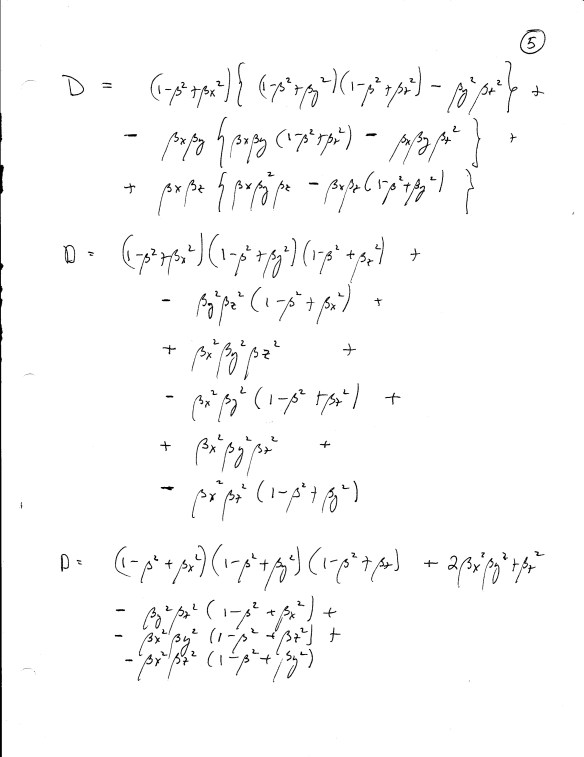 ⑤
D = (1-β²+βx²){ (1-β²+βy²)(1-β²+βz²) - βy²βz² } +
- βxβy { βxβy (1-β²+βz²) - βxβyβz² } +
+ βxβz { βxβy²βz - βxβz(1-β²+βy²) }
D = (1-β²+βx²)(1-β²+βy²)(1-β²+βz²) +
- βy²βz² (1-β²+βx²) +
+ βx²βy²βz² +
- βx²βy² (1-β²+βz²) +
+ βx²βy²βz² +
- βx²βz² (1-β²+βy²)
D = (1-β²+βx²)(1-β²+βy²)(1-β²+βz) + 2βx²βy²+βz²
- βy²βz² (1-β²+βx²) +
- βx²βy² (1-β²+βz²) +
- βx²βz² (1-β²+βy²)